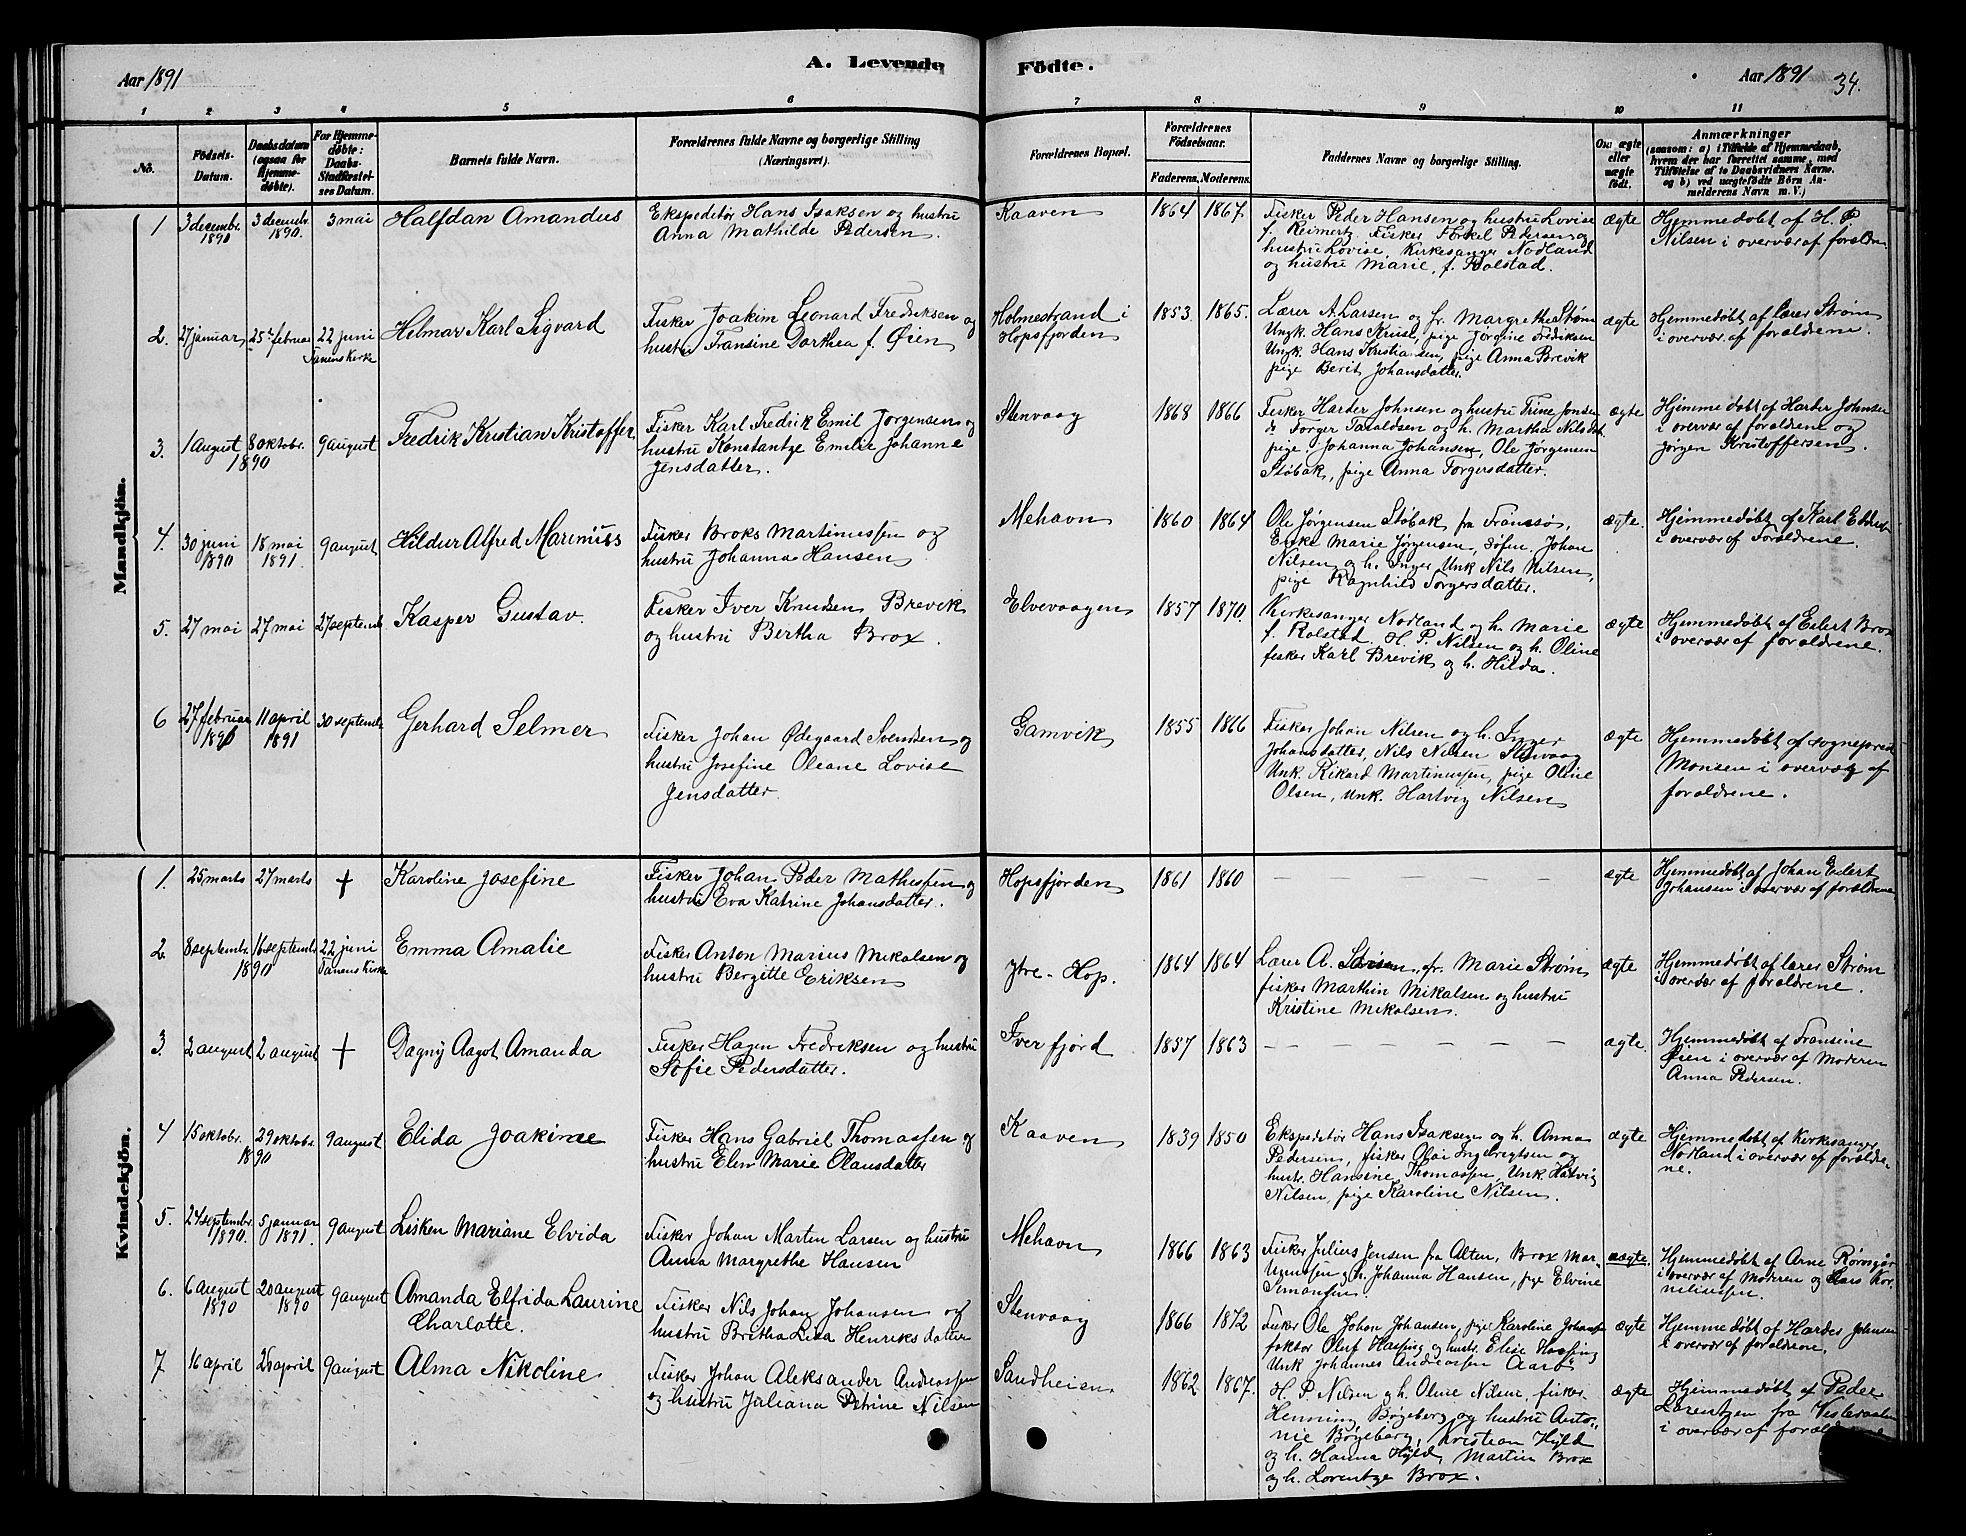 Aar 1891
A. Levende
Födte.
Aar 1891
34.
1 2 3 4 5 6 7 8 9 10 11
No.
Födsels-
Datum.
Daabsdatum
(ogsaa for
Hjemme-
döbte).
For Hjemme-
döbte:
Daabs-
Stadfæstel-
ses Datum.
Barnets fulde Navn.
Forældrenes fulde Navne og borgerlige Stilling
(Næringsvei).
Forældrenes Bopæl.
Forældrenes
Födselsaar.
Faderens. Moderens.
Faddernes Navne og borgerlige Stilling.
Om ægte
eller
uægte
födt.
Anmærkninger
(saasom: a) i Tilfælde af Hjemmedaab,
hvem der har forrettet samme, med
Tilföielse af to Daabsvidners Navne.
og b) ved uægtefödte Börn An-
melderens Navn m. V.)
Mandkjön.
1 3 decembr. 1890 3 decembr. 1890. 3 mai Halfdan Amandus
Ekspeditör Hans Isaksen og hustru
Anna Mathilde Pedersen.
Kaaven 1864 1867.
Fisker Peder Hansen og hustru Lovise
f. Reimertz, Fisker Torkel Pedersen og
hustru Lovise, Kirkesanger Nodland
og hustru Marie, f. Rolstad.
ægte
Hjemmedøbt af H. P.
Nilsen i overvær af foræld
2. 27 januar 25 februar 22 juni Tanens Kirke Helmar Karl Sigvard
Fisker Joakim Leonard Fredriksen og
hustru Fransine Dorthea f. Øien
Holmestrand i
Hopsfjorden
1853 1865.
Lærer A. Larsen og fr. Margrethe Strøm
Ungk. Hans Kruse, pige Jørgine Fredriksen
Ungk. Hans Kristiansen, pige Anna Brevik
pige Berit Johansdatter.
ægte
Hjemmedøbt af lærer Strøm
i overvær af forældrene.
3. 1 august 8 oktobr. 1890 9 august Fredrik Kristian Kristoffer
Fisker Karl Fredrik Emil Jørgensen og
hustru Konstantze Emilie Johanne
Jensdatter.
Stenvaag 1868 1866
Fisker Harder Johnsen og hustru Trine Jons
Torger Taraldsen og h. Martha Nilsdt.
pige Johanna Johansen, Ole Jørgensen
Støbak, pige Anna Torgersdatter.
ægte
Hjemmedøbt af Harder Johnsen
i overvær af forældrene og
Jørgen Kristoffersen.
4. 30 juni 1890 18 mai 1891. 9 august Hildur Alfred Marinius
Fisker Broks Martinussen og
hustru Johanna Hansen
Mehavn 1860 1864
Ole Jørgensen Støbak fra
Enke Marie Jørgensen, Johan
Nilsen og h. Inger Unk Nils Nilsen,
pige Ragnhild Torgersdatter.
ægte.
Hjemmedøbt af Karl
i overvær af Forældrene.
5. 27 mai 27 mai 27 septembr Kasper Gustav.
Fisker Iver Knudsen Brevik
og hustru Bertha Brox.
Elvevaagen 1857 1870.
Kirkesanger Nodland og h. Marie
f. Rolstad. H. P. Nilsen og h. Oline
fisker Karl Brevik og h. Hilda.
ægte
Hjemmedøbt af Eilert Brox
i overvær af forældrene.
6 27 februar 1891 11 april 1891 30 septembr Gerhard Selmer
Fisker Johan Ødegaard Svendsen og
hustru Josefine Oleane Lovise
Jensdatter.
Gamvik 1855 1866
Fisker Johan Nilsen og h. Inger
Johansdatter, Nils Nilsen Stenvaag
Unk. Rikard Martinussen, pige Oline
Olsen, unk. Hartvig Nilsen
ægte
Hjemmedøbt af sogneprest
Monsen i overvær af
forældrene.
Kvindekjön.
1. 25 marts 27 marts + Karoline Josefine
Fisker Johan Peder Mathissen og
hustru Eva Katrine Johansdatter.
Hopsfjorden 1861 1860 — — — — — — ægte
Hjemmedøbt af Johan Eilert
Johansen i overvær af forældrene
2. 8 septembr. 16 septembr 1890 22 juni Tanens Kirke Emma Amalie
Fisker Anton Marius Mikalsen og
hustru Bergitte Eriksen
Ytre-Hop. 1864 1864
Lærer A. Larsen, fr. Marie Strøm
fisker Marthin Mikalsen og hustru
Kristine Mikalsen.
ægte
Hjemmedøbt af lærer Strøm
i overvær af forældrene.
3. 2 august 2 august + Dagny Aagot Amanda
Fisker Hagen Fredriksen og hustru
Sofie Pedersdatter.
Iverfjord 1857 1863 — — — — — — ægte.
Hjemmedøbt af Fransine
Øien i overvær af Moderen
Anna Pedersen.
4 15 oktobr. 29 oktobr. 1890 9 august Elida Joakime
Fisker Hans Gabriel Thomassen og
hustru Elen Marie Olausdatter
Kaaven 1839 1850
Ekspeditør Hans Isaksen og h. Anna
Pedersen, fisker Olai Ingebrigtsen og
hustr. Hansine Thomassen, Unk. Hartvig
Nilsen, pige Karoline Nilsen.
ægte
Hjemmedøbt af Kirkesanger
Nodland i overvær af forældre-
ne.
5. 24 septembr 1890. 5 januar 1891. 9 august Lisken Mariane Elvida
Fisker Johan Martin Larsen og hustru
Anna Margrethe Hansen
Mehavn 1866 1863
Fisker Julius Jensen fra Alten, Brox Mar-
tinussen og h. Johanna Hansen, pige Elvine
Simonsen.
uægte.
Hjemmedøbt af Arne
i overvær af Moderen og Lars Kor-
neliussen.
6. 6 august 1890 20 august 1890 9 august Amanda Elfrida Laurine
Charlotte.
Fisker Nils Johan Johansen og
hustru Britha Lisa Henriksdatter
Stenvaag 1866 1872
Fisker Ole Johan Johansen, pige Karoline Johans
faktor Oluf Hasfing og hustr. Elise Hasfing
Unk Johannes Andreassen Aarø
ægte
Hjemmedøbt af Harder Johnsen
i overvær af forældrene.
7 16 april 26 april 9 august Alma Nikoline
Fisker Johan Aleksander Andreassen
og hustru Juliana Petrine Nilsen
Sandheien 1862 1867.
H. P. Nilsen og h. Oline Nilsen, fisker
Henning Bøgeberg og hustru Anto-
nie Bøgeberg, Kristian Hyld
og h. Hanna Hyld, Martin Brox
og h. Lorentze Brox.
ægte
Hjemmedøbt af Peder
Lorentzen fra Vesteraalen
i overvær af